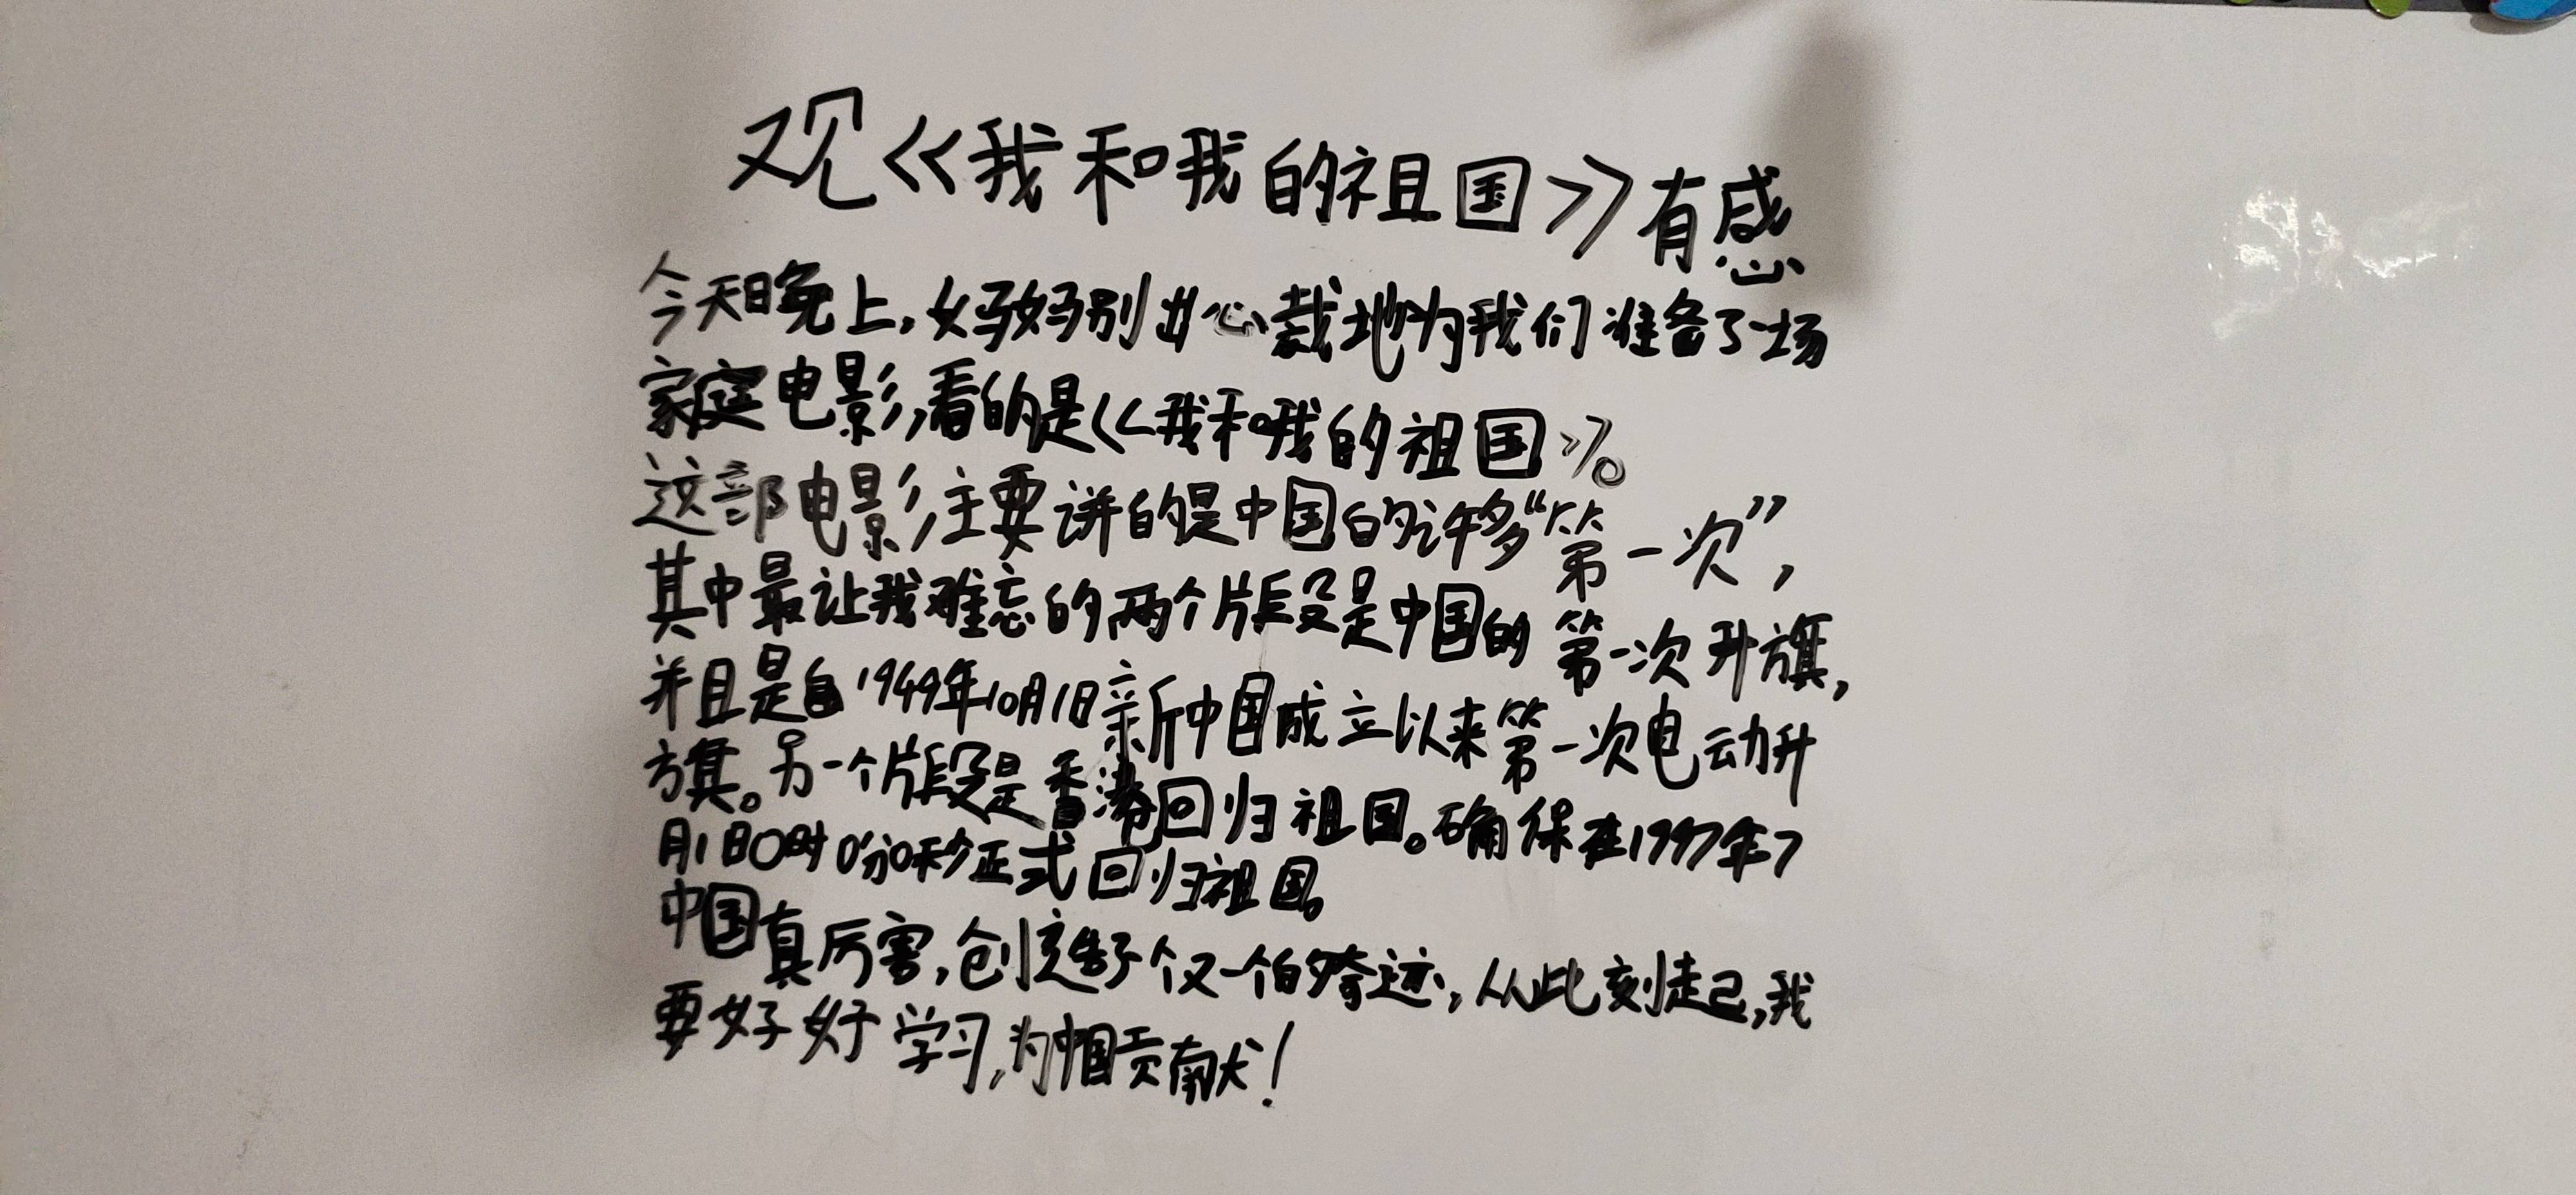 观《我和我的祖国》有感
今天晚上,妈妈别出心裁地为我们准备了一场
家庭电影,看的是《我和我的祖国》。
这部电影主要讲的是中国的许多“第一次”,
其中最让我难忘的两个片段是中国的第一次升旗,
并且是自1949年10月1日新中国成立以来第一次电动升
旗。另一个片段是香港回归祖国。确保在1997年7
月1日0时0分0秒正式回归祖国。
中国真厉害,创造了一个又一个的奇迹,从此刻起,我
要好好学习,为中国贡献!